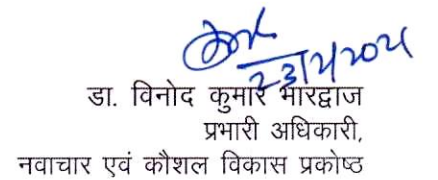 23/2/2021
डा. विनोद कुमार भारद्वाज
प्रभारी अधिकारी,
नवाचार एवं कौशल विकास प्रकोष्ठ